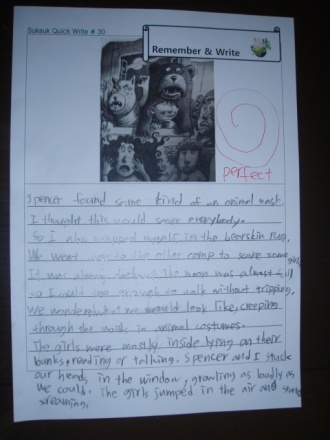 Suksuk Quick Write # 30
Remember & Write
perfect
Spencer found some kind of an animal mask.
I thought this would scare everybody.
So I also wrapped myself in the bearskin rug.
We went over to the other camp to scare some girls.
It was already dark but the moon was almost full
so I could see enough to walk without tripping.
We wondered what we would look like, creeping
through the woods in animal costumes.
The girls were mostly inside lying on their
bunks, reading or talking. Spencer and I stuck
our heads in the window, growling as loudly as
we could. The girls jumped in the air and started
screaming.